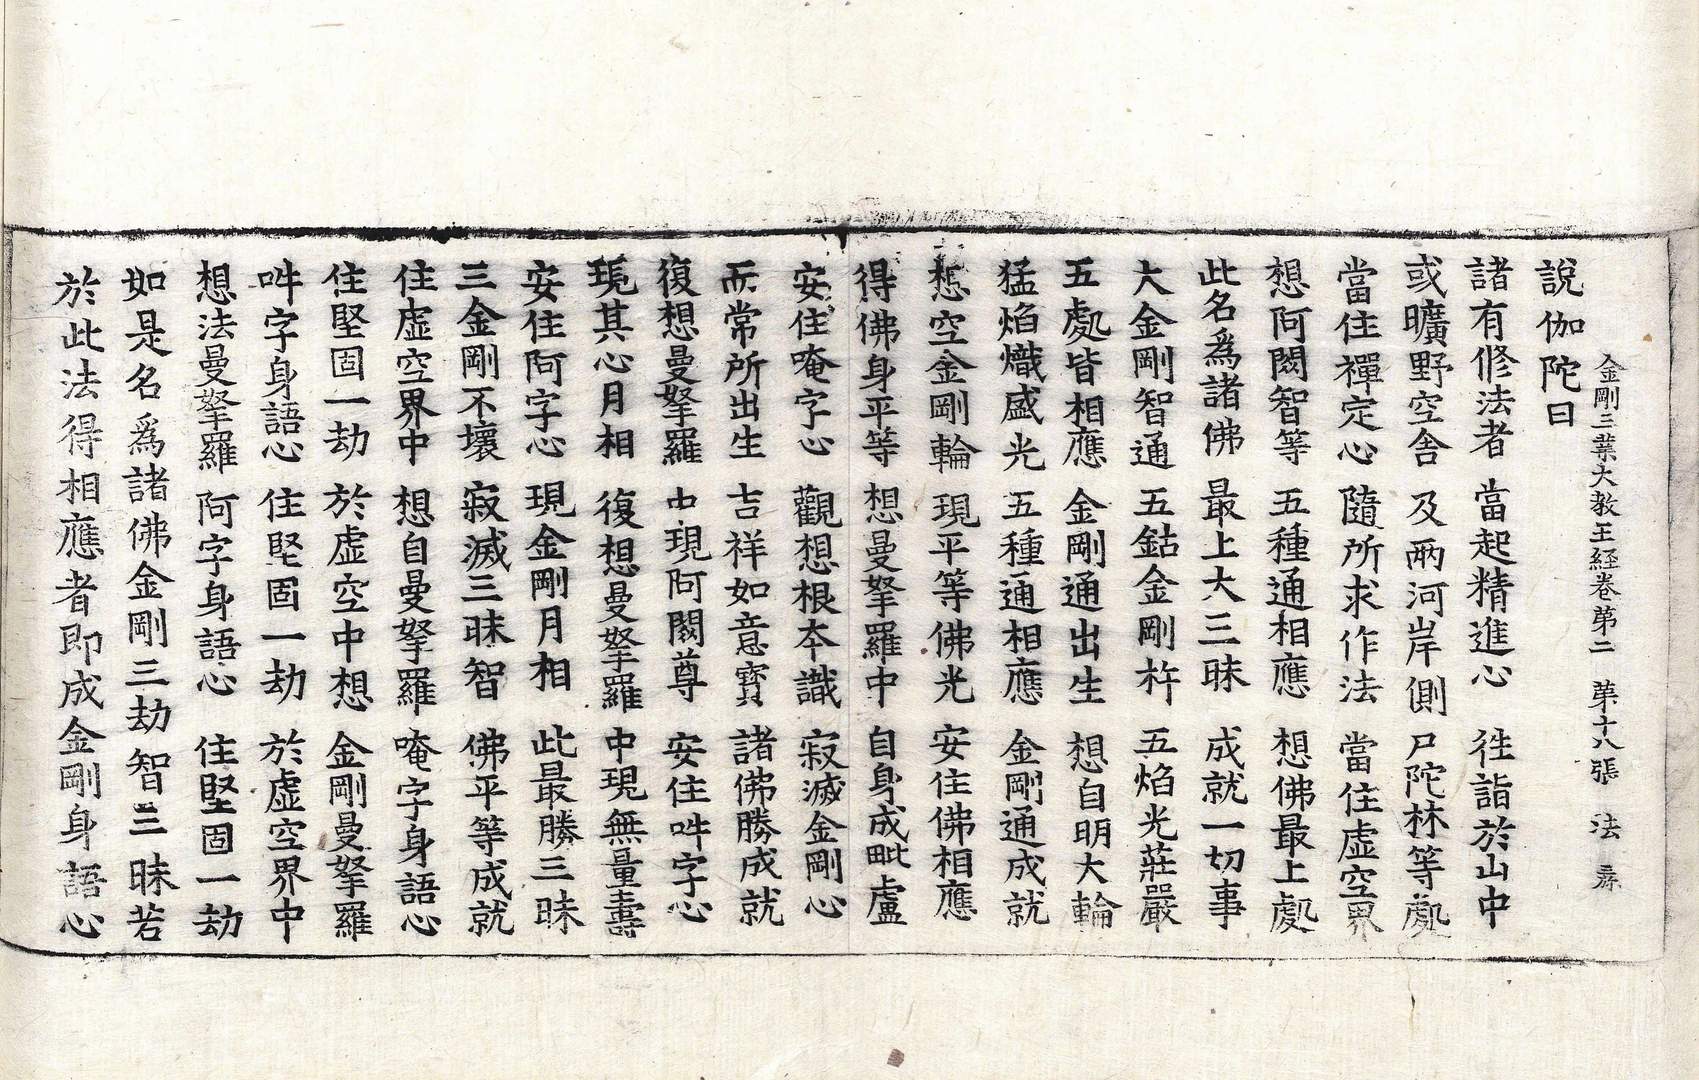 金剛三業大教王経卷第二　第十八張　法　彛
說伽陀曰
諸有修法者　當起精進心　徃詣於山中
或曠野空舎　及兩河岸側　尸陀林等處
當住禪定心　隨所求作法　當住虛空界
想阿閦智等　五種通相應　想佛最上處
此名爲諸佛　最上大三昧　成就一切事
大金剛智通　五鈷金剛杵　五焰光莊嚴
五處皆相應　金剛通出生　想自明大輪
猛焰熾盛光　五種通相應　金剛通成就
想空金剛輪　現平等佛光　安住佛相應
得佛身平等　想曼拏羅中　自身成毗盧
安住唵字心　觀想根本識　寂滅金剛心
而常所出生　吉祥如意寳　諸佛勝成就
復想曼拏羅　中現阿閦尊　安住吽字心
現其心月相　復想曼拏羅　中現無量壽
安住阿字心　現金剛月相　此最勝三昧
三金剛不壞　寂滅三昧智　佛平等成就
住虛空界中　想自曼拏羅　唵字身語心
住堅固一劫　於虛空中想　金剛曼拏羅
吽字身語心　住堅固一劫　於虛空界中
想法曼拏羅　阿字身語心　住堅固一劫
如是名爲諸佛金剛三劫智三昧若
於此法得相應者即成金剛身語心